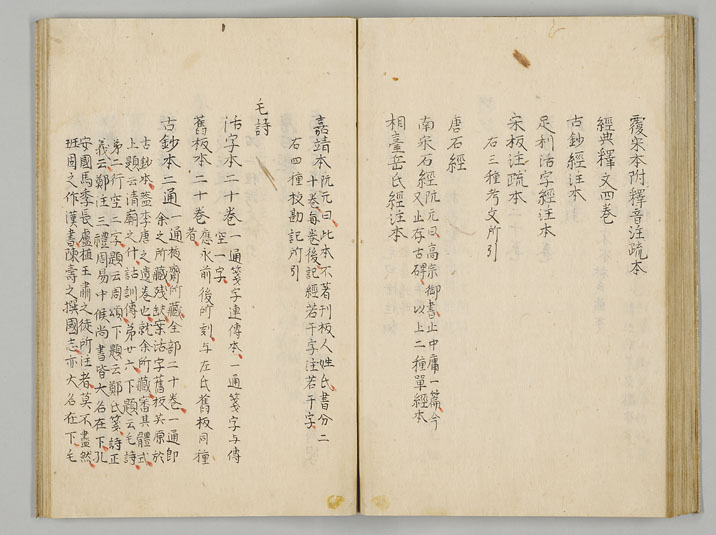 覆宋本附釋音注疏本
經典釋文四巻
古鈔經注本
足利活字經注本
宋板注疏本
右三種考文所引
唐石經
南宋石經阮元曰高宗御書止中庸一篇今
又止存古碑以上二種單經本
相臺岳氏經注本
嘉靖本阮元曰此本不著刊板人姓氏書分二
十巻每巻後記經若干字注若干字
右四種校勘記所引
毛詩
活字本二十巻一通箋字連傳本一通箋字与傳
空一字
舊板本二十巻應永前後所刻与左氏舊板同種
者
古鈔本二通一通 齋所藏全部二十巻一通即
余之所藏残缺 活字舊板共原於
古鈔本盖李唐之遺巻也就余所藏審其體式
上題云清廟之什詁訓傳第廿六下題云毛詩
第二行空二字題云周頌下題云鄭氏箋詩正
義云鄭注三禮周易中候尚書皆大名在下孔
安國馬季長盧植王肅之徒所注者莫不盡然
班固之作漢書陳壽之撰國志亦大名在下毛